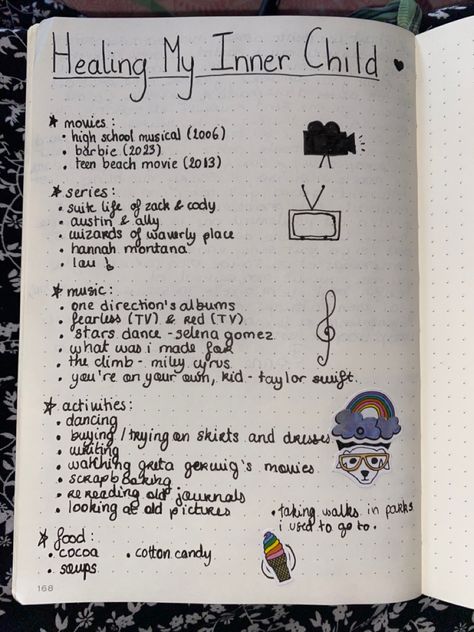 Healing My Inner Child
movies :
• high school musical (2006)
• barbie (2023)
• teen beach movie (2013)
series :
• suite life of zack & cody
• austin & ally
• wizards of waverly place
• hannah montana
• lou !
music :
• one direction's albums
• fearless (TV) & red (TV)
• stars dance - selena gomez
• what was i made for
• the climb - miley cyrus
• you're on your own, kid - taylor swift
activities :
• dancing
• buying / trying on skirts and dresses
• writing
• watching greta gerwig's movies
• scrapbooking
• rereading old journals
• looking at old pictures
• taking walks in parks
i used to go to.
food :
• cocoa • cotton candy
• soups
168